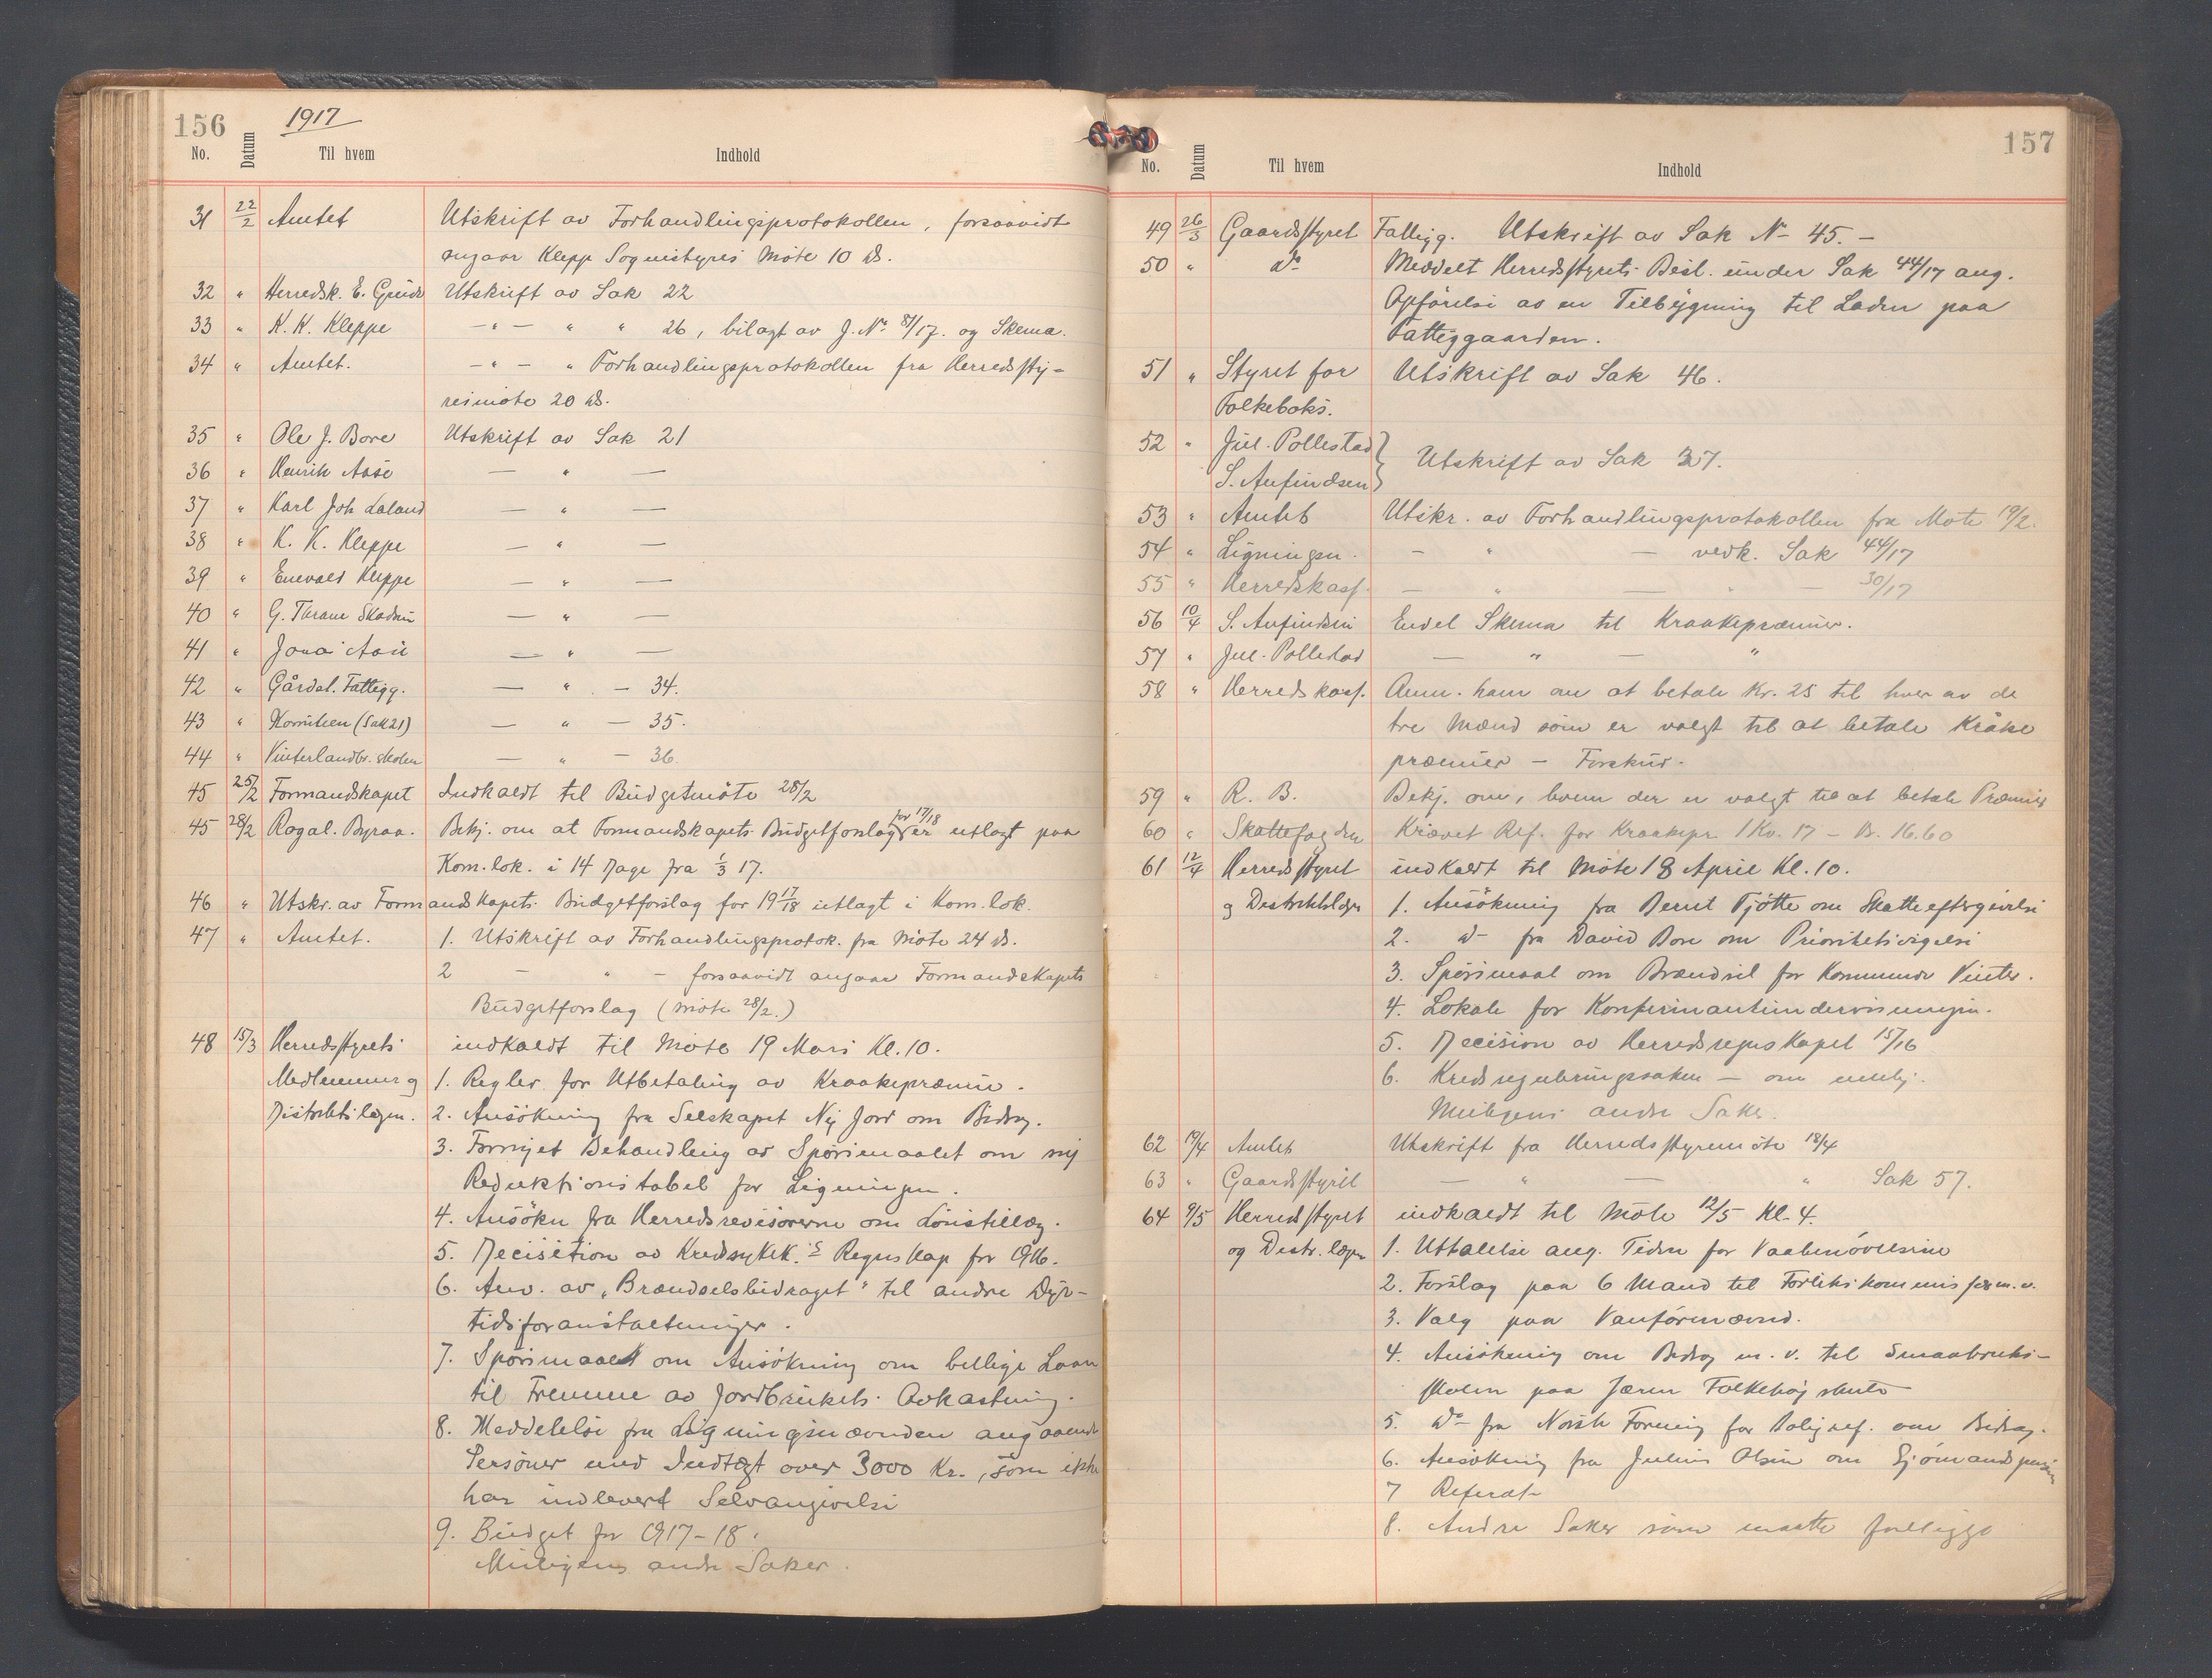 156
1917
No. Datum Til hvem Indhold
31 22/2 Amtet Utskrift av Forhandlingsprotokollen, forsaavidt
angaar Klepp Sognestyres Møte 10 ds.
32 " Herredsk. E. Grude Utskrift av Sak 22
33 " K. K. Kleppe —"— " " 26, bilagt av J. No 81/17. og Skema.
34 " Amtet. —"— " Forhandlingsprotokollen fra Herredssty-
resmøte 20 ds.
35 " Ole J. Bore Utskrift av Sak 21
36 " Henrik Aase — " —
37 " Karl Joh Laland — " —
38 " K. K. Kleppe — " —
39 " Enevald Kleppe — " —
40 " G. Thrane — " —
41 " Jona Aase — " —
42 " Gårdst. Fattigg. — " — 34.
43 " Komiteen (Sak 21) — " — 35.
44 " Vinterlandbr. skolen — " — 36.
45 25/2 Formandskapet Indkaldt til Budgetmøte 28/2
45 28/2 Rogal. Byraa. Bekj. om at Formandskapets Budgetforslag for 17/18 er utlagt paa
Kom. lok. i 14 Dage fra 1/3 17.
46 " Utskr. av Formandskapets Budgetforslag for 19 17/18 utlagt i Kom. lok.
47 " Amtet. 1. Utskrift av Forhandlingsprotok. fra Møte 24 ds.
2 — " — forsaavidt angaar Formandskapets
Budgetforslag (møte 28/2.)
48 15/3 Herredsstyrets indkaldt til Møte 19 Mars Kl. 10.
Medlemmer og 1. Regler for Utbetaling av Kraakepræmie.
Distriktslægen. 2. Ansøkning fra Selskapet Ny Jord om Bidrag.
3. Fornyet Behandling av Spørsmaalet om ny
Reduktionstabel for Ligningen.
4. Ansøkn fra Herredsrevisorerne om Lønstillæg.
5. Decisition av Kredssykek.s Regnskap for 1916.
6. Anv. av "Brændselsbidraget" til andre Dyr-
tidsforanstaltninger.
7. Spørsmaalet om Ansøkning om billige Laan
til Fremme av Jordbrukets Avkastning.
8. Meddelelse fra Ligningsnævnden angaaende
Personer med Indtægt over 3000 Kr., som ikke
har indlevert Selvangivelse
9. Budget for 1917-18.
Muligens andre Saker.
157
No. Datum Til hvem Indhold
49 26/3 Gaardsstyret Fattigg. Utskrift av Sak No 45. —
50 " do Meddelt Herredsstyrets Besl. under Sak 44/17 ang.
Opførelse av en Tilbygning til Laden paa
Fattiggaarden.
51 " Styret for Utskrift av Sak 46.
Folkeboks.
52 " Jul. Pollestad
S. Anfindsen } Utskrift av Sak 37.
53 " Amtet Utskr. av Forhandlingsprotokollen fra Møte 19/2.
54 " Ligningsn. — " — vedk. Sak 44/17
55 " Herredskass. — " — " — 30/17
56 10/4 S. Anfindsen Endel Skema til Kraakepræmier.
57 " Jul. Pollestad — " — "
58 " Herredskass. Anm. ham om at betale Kr. 25 til hver av de
tre Mænd som er valgt til at betale Kråke
præmier — Forskud.
59 " R. B. Bekj. om, hvem der er valgt til at betale Præmier
60 " Skattefogden Krævet Ref. for Kraakepr. 1 Kv. 17 — Kr. 16.60
61 12/4 Herredsstyret indkaldt til Møte 18 April Kl. 10.
og Distriktslægen 1. Ansøkning fra Bernt Tjøtte om Skatteeftergivelse
2. do fra David Bore om Prioritetsvigelse
3. Spørsmaal om Brændsel for Kommende Vinter.
4. Lokale for Konfirmantundervisningen.
5. Decision av Herredsregnskapet 15/16
6. Kredsreguleringssaken — om mulig.
Muligens andre Saker.
62 19/4 Amtet Utskrift fra Herredsstyremøte 18/4
63 " Gaardsstyret — " — " Sak 57.
64 9/5 Herredsstyret indkaldt til Møte 12/5 Kl. 4.
og Distr. lægen 1. Uttalelse ang. Tiden for Vaabenøvelserne
2. Forslag paa 6 Mand til Forlikskommissær m. v.
3. Valg paa Vanførenævnd.
4. Ansøkning om Bidrag m. v. til Smaabruks-
skolen paa Jæren Folkehøjskule
5. do fra Norsk Forening for Boligref. om Bidrag.
6. Ansøkning fra Julius Olsen om Sjømandspension
7 Referat
8. Andre Saker som maatte foreligge